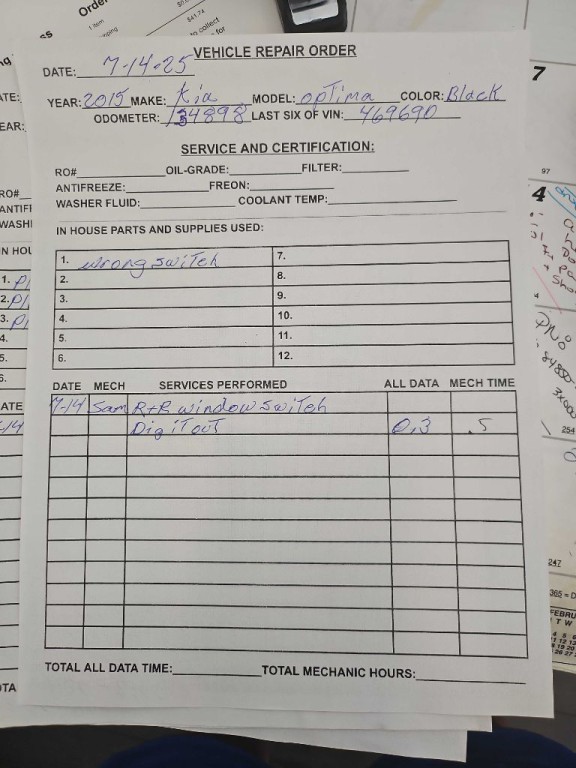 VEHICLE REPAIR ORDER
DATE: 7-14-25
YEAR: 2015 MAKE: Kia MODEL: opTima COLOR: Black
ODOMETER: 134898 LAST SIX OF VIN: 469690
SERVICE AND CERTIFICATION:
RO# OIL-GRADE: FILTER:
ANTIFREEZE: FREON:
WASHER FLUID: COOLANT TEMP:
IN HOUSE PARTS AND SUPPLIES USED:
1. wrong switch 7.
2. 8.
3. 9.
4. 10.
5. 11.
6. 12.
DATE MECH SERVICES PERFORMED ALL DATA MECH TIME
7-14 Sam R+R window switch
Dig iT ouT 0.3 .5
TOTAL ALL DATA TIME: TOTAL MECHANIC HOURS:
7
97
4
254
247